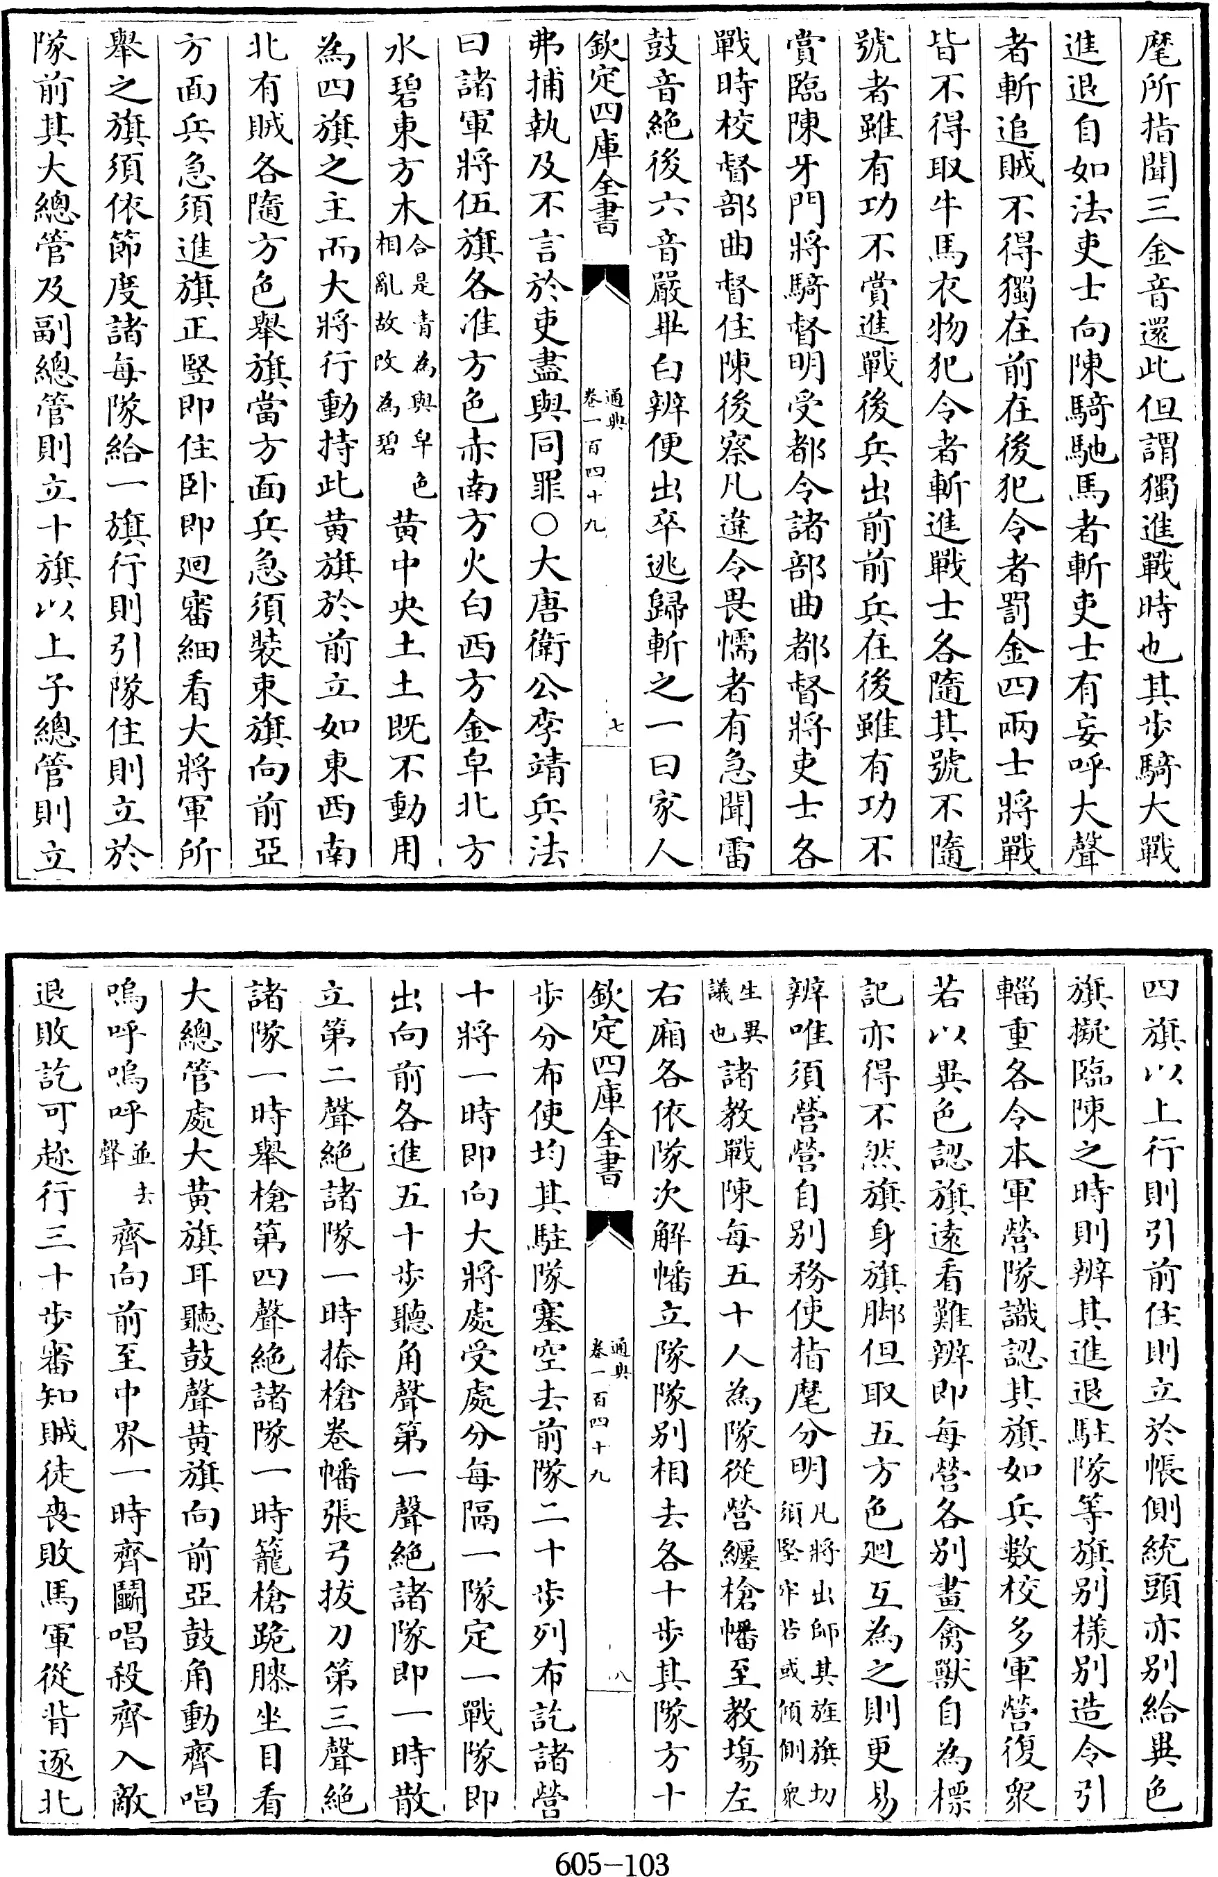 麾所指聞三金音還此但謂獨進戰時也其步騎大戰
進退自如法吏士向陳騎馳馬者斬吏士有妄呼大聲
者斬追賊不得獨在前在後犯令者罰金四兩士將戰
皆不得取牛馬衣物犯令者斬進戰士各隨其號不隨
號者雖有功不賞進戰後兵出前前兵在後雖有功不
賞臨陳牙門將騎督明受都令諸部曲都督將吏士各
戰時校督部曲督住陳後察凡違令畏懦者有急聞雷
鼓音絶後六音嚴畢白辨便出卒逃歸斬之一曰家人
欽定四庫全書 通典卷一百四十九 七
弗捕執及不言於吏盡與同罪○大唐衛公李靖兵法
曰諸軍將伍旗各准方色赤南方火白西方金皁北方
水碧東方木合是青為與皁色相亂故改為碧黄中央土土既不動用
為四旗之主而大將行動持此黄旗於前立如東西南
北有賊各隨方色舉旗當方面兵急須裝束旗向前亞
方面兵急須進旗正竪即住卧即廻審細看大將軍所
舉之旗須依節度諸每隊給一旗行則引隊住則立於
隊前其大總管及副總管則立十旗以上子總管則立
四旗以上行則引前住則立於帳側統頭亦别給異色
旗擬臨陳之時則辨其進退駐隊等旗别樣别造令引
輜重各令本軍營隊識認其旗如兵數校多軍營復衆
若以異色認旗遠看難辨即每營各别畫禽獸自為標
記亦得不然旗身旗脚但取五方色廻互為之則更易
辨唯須營營自别務使指麾分明凡將出師其旌旗切須堅牢若或傾側衆
生異議也諸教戰陳每五十人為隊從營纏槍幡至教塲左
右廂各依隊次解幡立隊隊别相去各十步其隊方十
欽定四庫全書 通典卷一百四十九 八
步分布使均其駐隊塞空去前隊二十步列布訖諸營
十將一時即向大將處受處分每隔一隊定一戰隊即
出向前各進五十步聽角聲第一聲絶諸隊即一時散
立第二聲絶諸隊一時捺槍卷幡張弓拔刀第三聲絶
諸隊一時舉槍第四聲絶諸隊一時籠槍跪膝坐目看
大總管處大黄旗耳聽鼓聲黄旗向前亞鼓角動齊唱
嗚呼嗚呼並去聲齊向前至中界一時齊鬭唱殺齊入敵
退敗訖可趂行三十步審知賊徒喪敗馬軍從背逐北
605-103